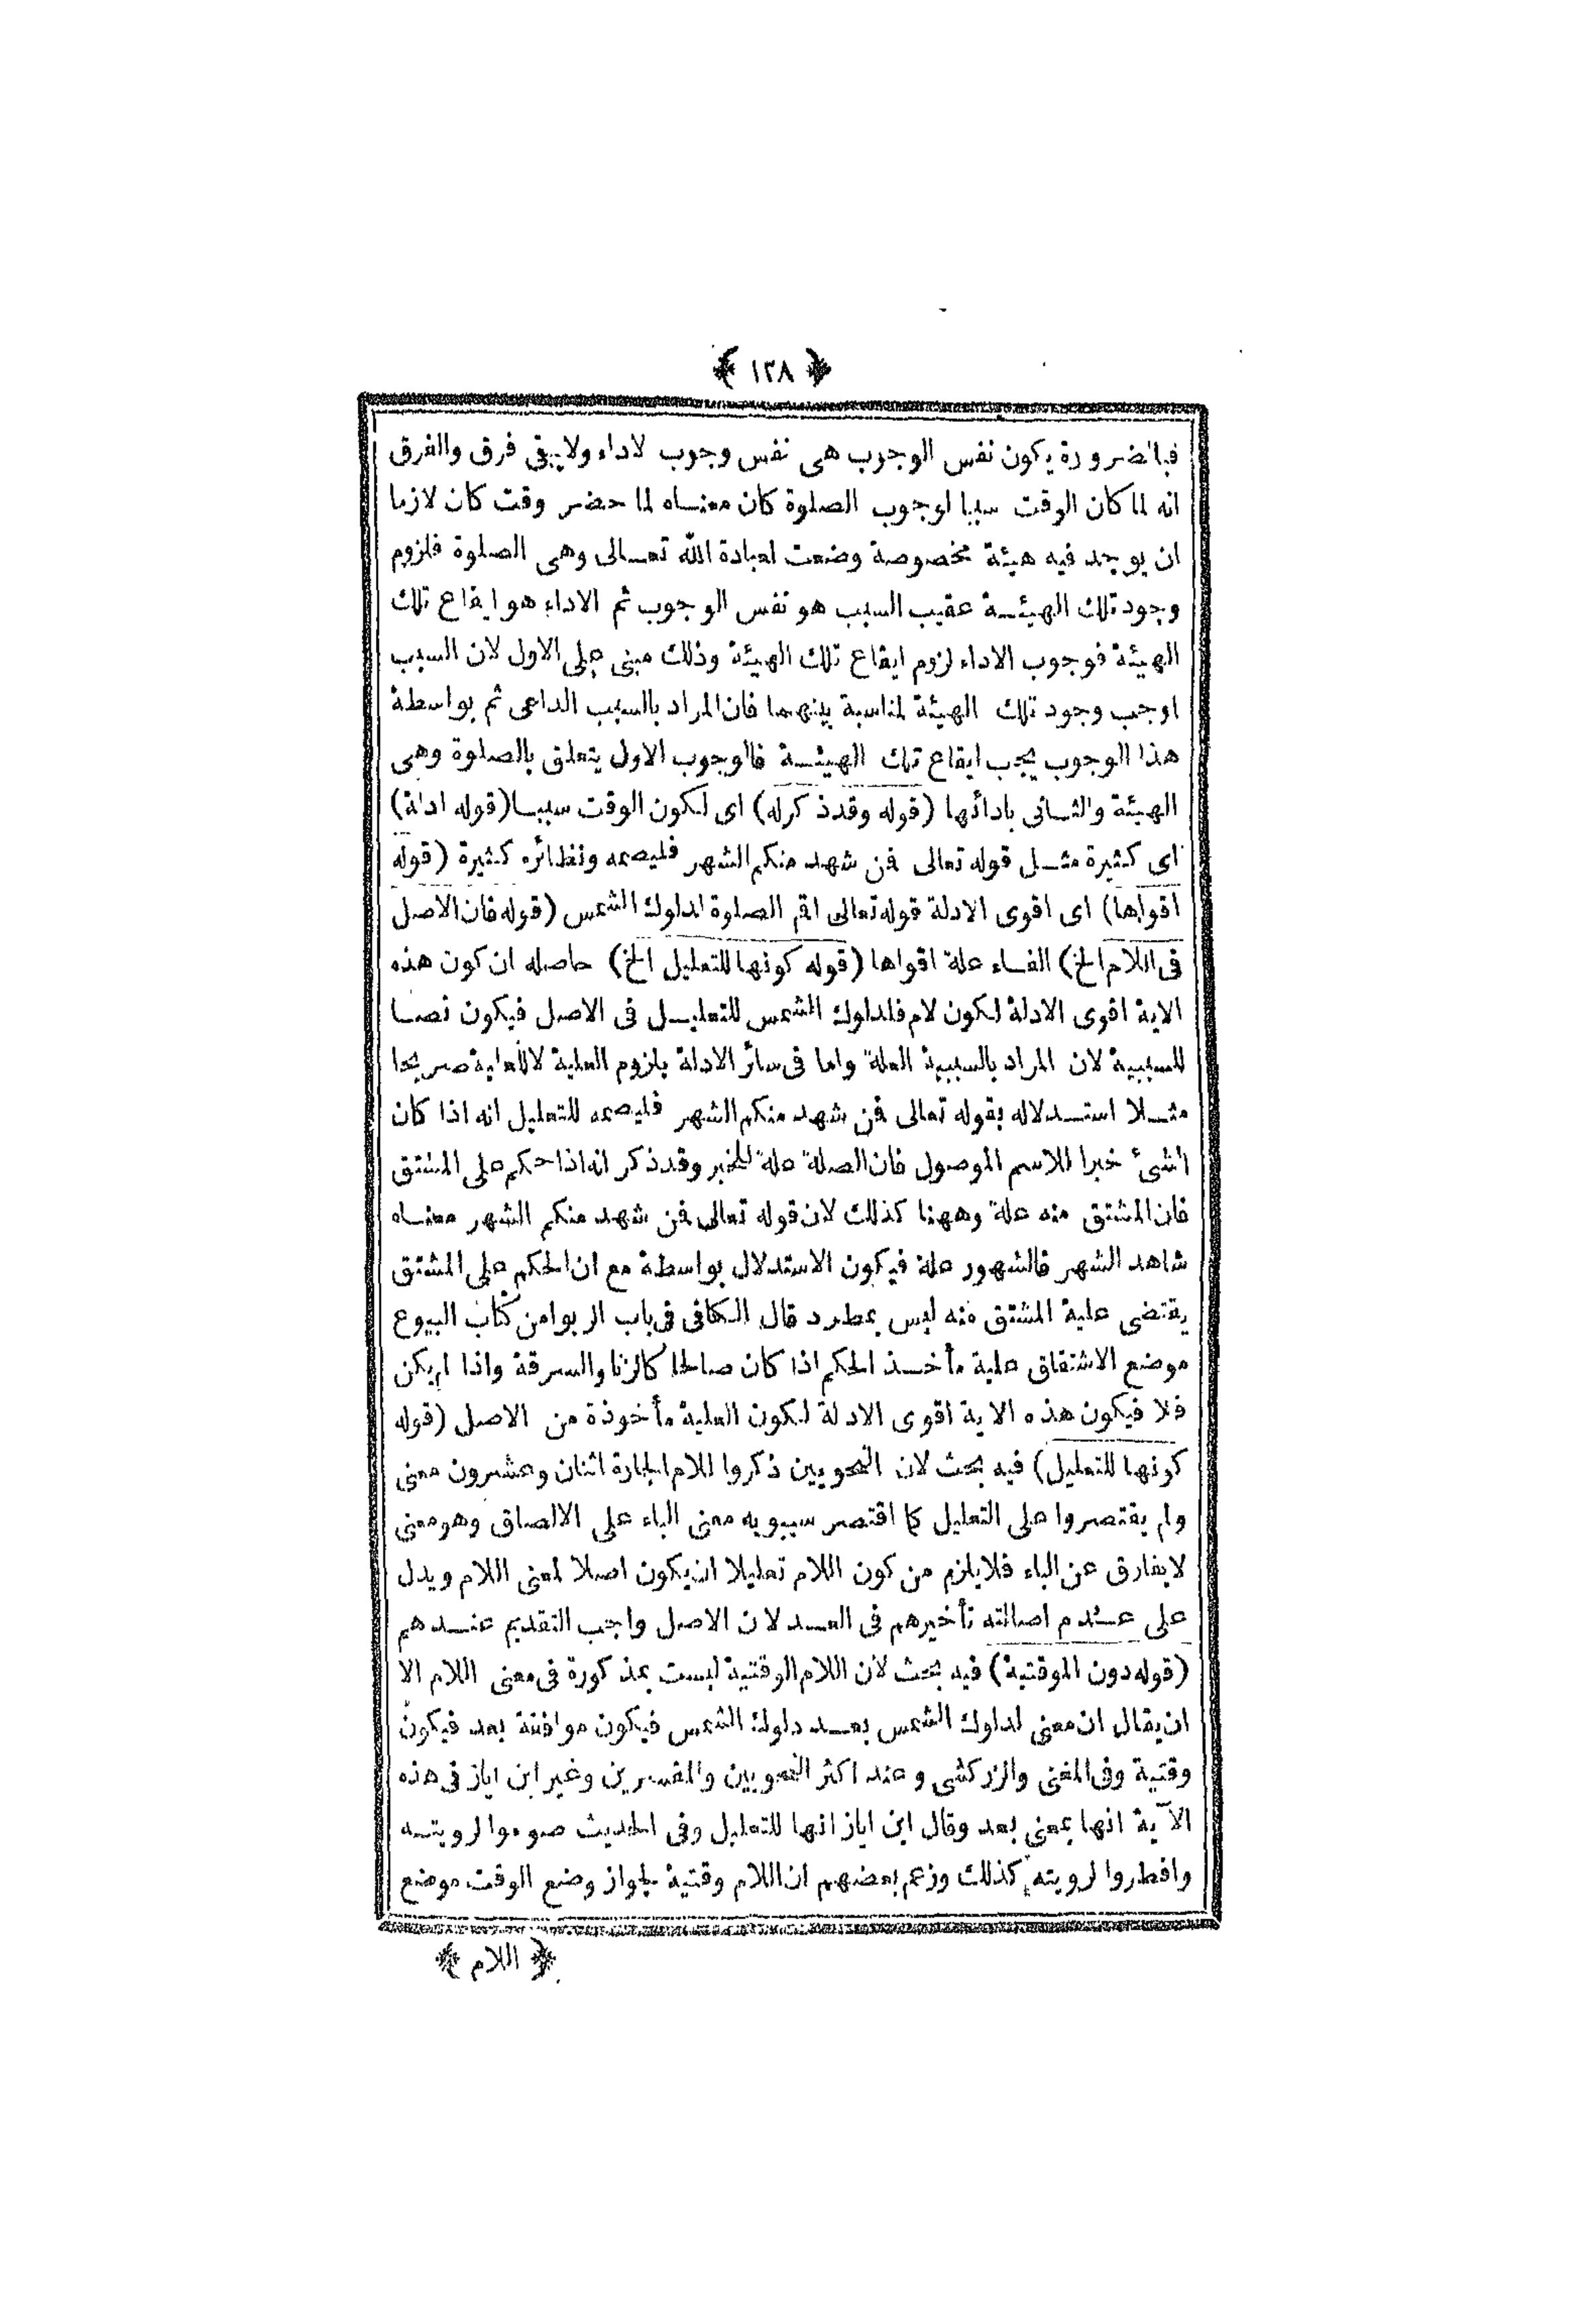 ﴿ ١٢٨ ﴾
فبالضرورة يكون نفس الوجوب هى نفس وجوب لاداء ولايبقى فرق والفرق
انه لما كان الوقت سببا لوجوب الصلوة كان معنساه لما حضر وقت كان لازما
ان يوجد فيه هيئة مخصوصة وضعت لعبادة الله تعالى وهى الصلوة فلزوم
وجود تلك الهيئة عقيب السبب هو نفس الوجوب ثم الاداء هو ايقاع تلك
الهيئة فوجوب الاداء لزوم ايقاع تلك الهيئة وذلك مبنى على الاول لان السبب
اوجب وجود تلك الهيئة لمناسبة بينهما فان المراد بالسبب الداعى ثم بواسطة
هذا الوجوب يجب ايقاع تلك الهيئة فالوجوب الاول يتعلق بالصلوة وهى
الهيئة والثانى بادائها (قوله وقدذكرله) اى لكون الوقت سببا (قوله ادلة)
اى كثيرة مثل قوله تعالى فمن شهد منكم الشهر فليصمه ونظائره كثيرة (قوله
اقواها) اى اقوى الادلة قوله تعالى اقم الصلوة لدلوك الشمس (قوله فان الاصل
فى اللام الخ) الفاء علة اقواها (قوله كونها للتعليل الخ) حاصله ان كون هذه
الاية اقوى الادلة لكون لام فلدلوك الشمس للتعليل فى الاصل فيكون نصا
للسببية لان المراد بالسببية العلة واما فى سائر الادلة يلزوم العلية لاللعلية صريحا
مثلا استدلاله بقوله تعالى فمن شهد منكم الشهر فليصمه للتعليل انه اذا كان
الشئ خبرا للاسم الموصول فان الصلة علة للخبر وقدذكر انه اذا حكم على المشتق
فان المشتق منه علة وههنا كذلك لان قوله تعالى فمن شهد منكم الشهر معناه
شاهد الشهر فالشهور علة فيكون الاستدلال بواسطة مع ان الحكم على المشتق
يقتضى علية المشتق منه ليس بمطرد قال الكافى فى باب الربوا من كتاب البيوع
موضع الاشتقاق علية مأخذ الحكم اذا كان صالحا كالزنا والسرقة واذا لم يكن
فلا فيكون هذه الاية اقوى الادلة لكون العلية مأخوذة من الاصل (قوله
كونها للتعليل) فيه بحث لان النحويين ذكروا للام الجارة اثنان وعشرون معنى
ولم يقتصروا على التعليل كما اقتصر سيبويه معنى الباء على الالصاق وهو معنى
لايفارق عن الباء فلايلزم من كون اللام تعليلا ان يكون اصلا لمعنى اللام ويدل
على عدم اصالته تأخيرهم فى العد لان الاصل واجب التقديم عندهم
(قوله دون الموقتية) فيه بحث لان اللام الوقتية ليست بمذكورة فى معنى اللام الا
ان يقال ان معنى لدلوك الشمس بعد دلوك الشمس فيكون موافقة بعد فيكون
وقتية وفى المغنى والزركشى وعند اكثر النحويين والمفسرين وغير ابن اياز فى هذه
الآية انها بمعنى بعد وقال ابن اياز انها للتعليل وفى الحديث صوموا لرويته
وافطروا لرويته كذلك وزعم بعضهم ان اللام وقتية بجواز وضع الوقت موضع
﴿ اللام ﴾